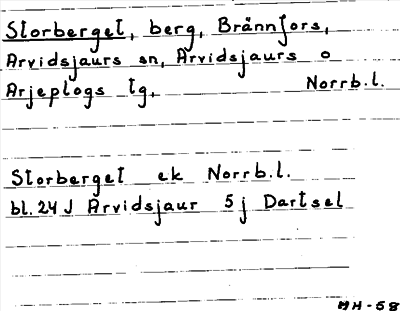 Storberget, berg, Brännfors,
Arvidsjaurs sn, Arvidsjaurs o
Arjeplogs tg, Norrb.l.
Storberget ek Norrb.l.
bl. 24 J Arvidsjaur 5 j Dartsel
MH-58